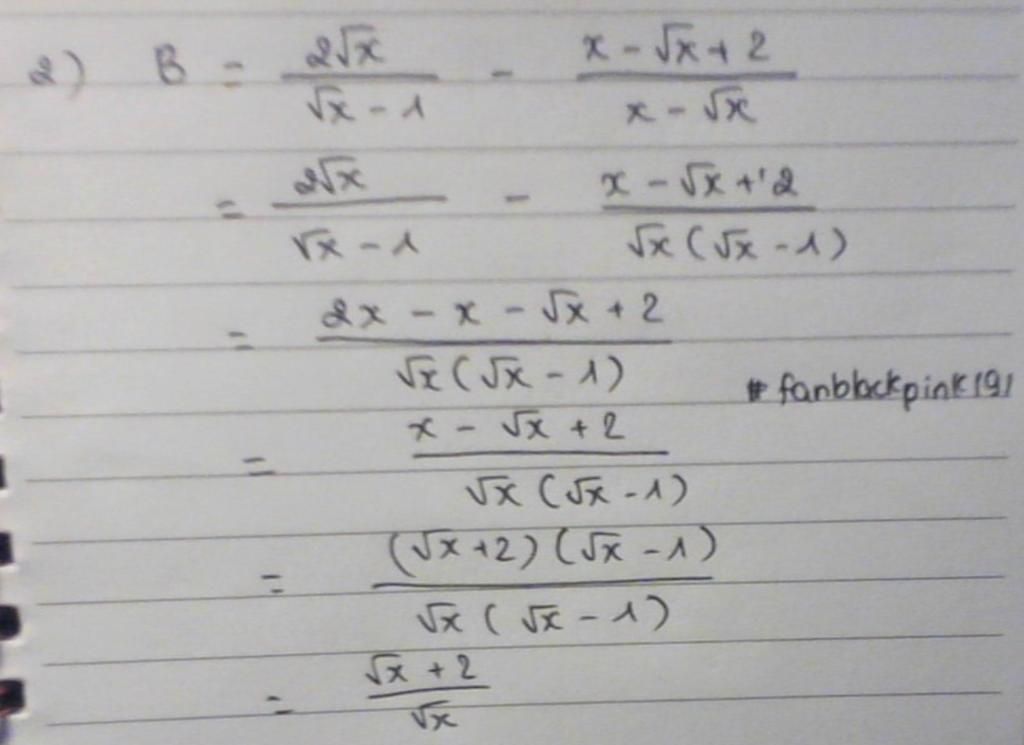 2) B = 2√x / (√x - 1) - (x - √x + 2) / (x - √x)
= 2√x / (√x - 1) - (x - √x + 2) / (√x (√x - 1))
= (2x - x - √x + 2) / (√x (√x - 1))
# fanblackpink191
= (x - √x + 2) / (√x (√x - 1))
= (√x + 2) (√x - 1) / (√x (√x - 1))
= (√x + 2) / √x